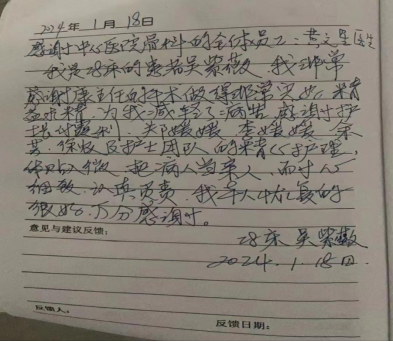 2024年1月18日
感谢中心医院骨科的全体员工：黄文星医生
我是28床的患者吴紫薇，我非常
感谢康主任的手术做得非常完好，精
益求精，为我减轻了病苦，感谢护
士长 郑媛媛 李媛媛 余
徐 及护士团队的精心护理，
体贴入微，把病人当亲人，而
细致，认真负责，我本人恢复的
很好，万分感谢。
28床 吴紫薇
2024.1.18日
意见与建议反馈：
反馈人：
反馈日期：